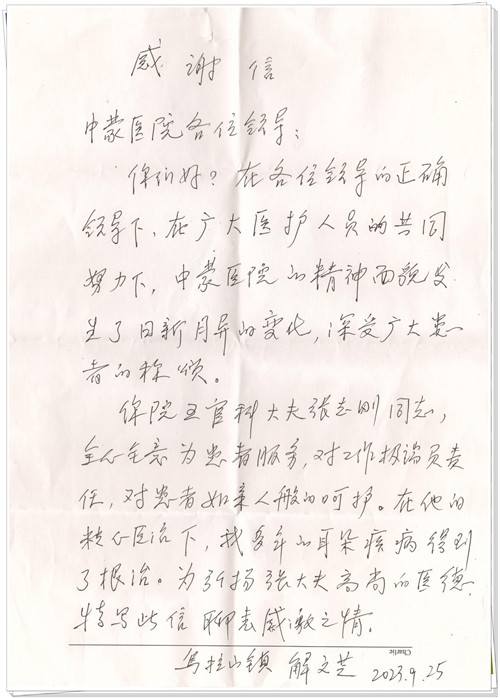 感谢信
中蒙医院各位领导：
你们好？在各位领导的正确
领导下，在广大医护人员的共同
努力下，中蒙医院的精神面貌发
生了日新月异的变化，深受广大患
者的称颂。
你院五官科大夫张志刚同志，
全心全意为患者服务，对工作极端负责
任，对患者如亲人般的呵护。在他的
精心医治下，我多年的耳朵疾病得到
了根治。为弘扬张大夫高尚的医德，
特写此信聊表感激之情。
Charlie
乌拉山镇 解文芝 2023.9.25